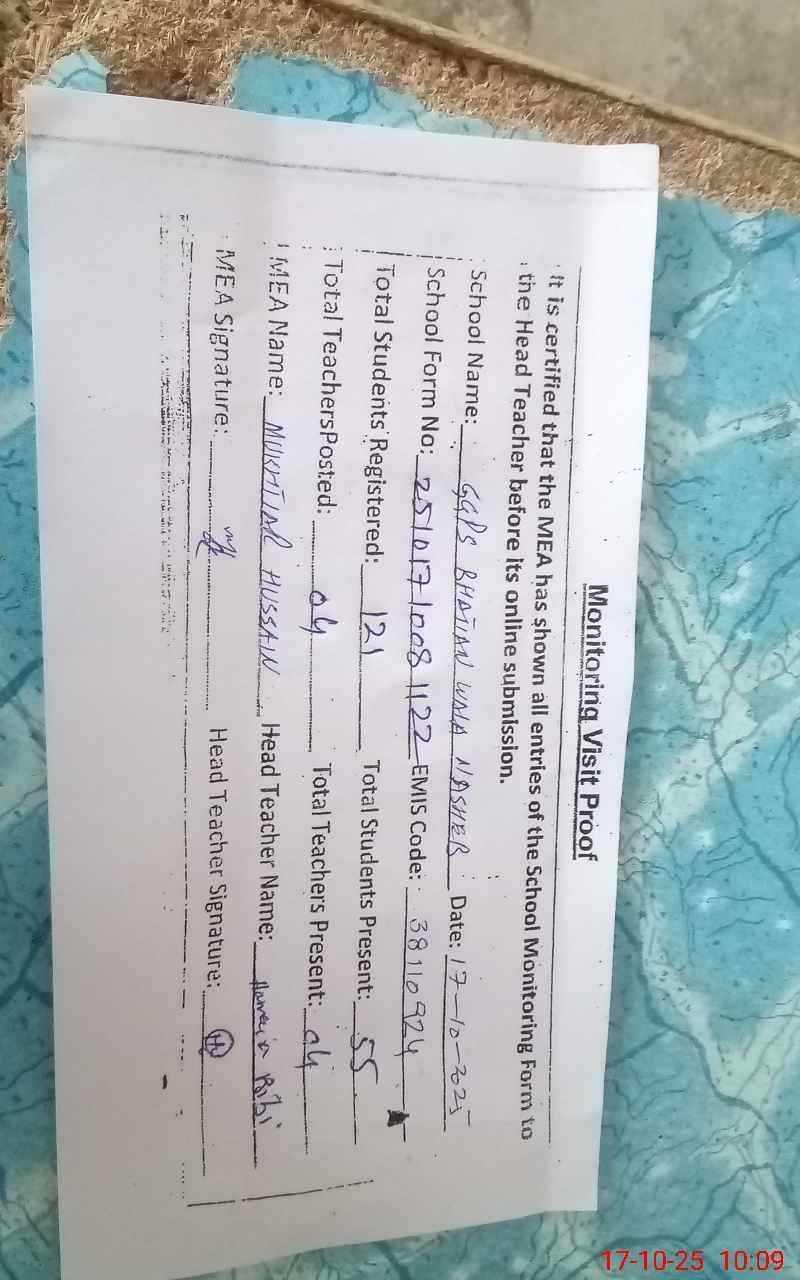 Monitoring Visit Proof
It is certified that the MEA has shown all entries of the School Monitoring Form to
the Head Teacher before its online submission.
School Name: GGPS BHATIAN WALA NASHEB Date: 17-10-2025
School Form No: 2510171008 1122 EMIS Code: 38110924
Total Students Registered: 121 Total Students Present: 55
Total TeachersPosted: 04 Total Teachers Present: 04
MEA Name: MUKHTIAR HUSSAIN Head Teacher Name: Bibi
MEA Signature: Head Teacher Signature:
17-10-25 10:09